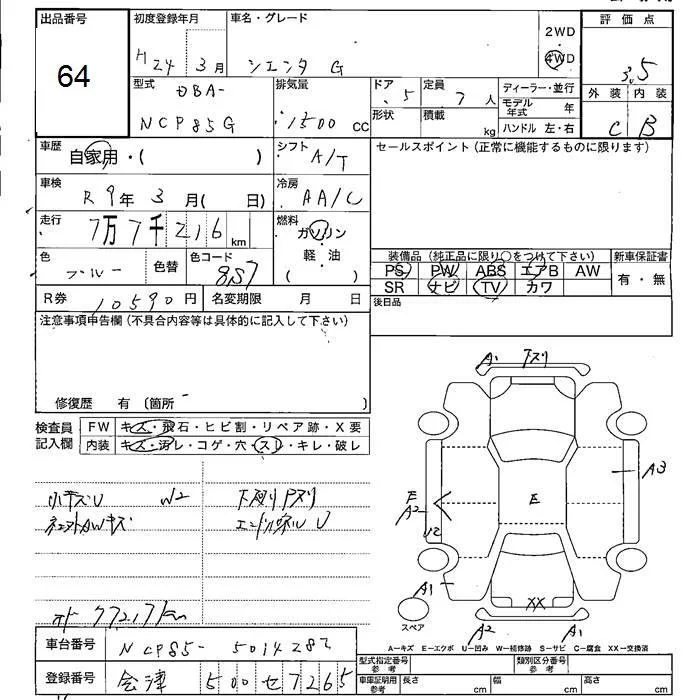 出品番号
64
初度登録年月
H24 3月
車名・グレード
シエンタ G
2WD
4WD
評価点
3.5
外装 内装
C B
型式
DBA-
NCP85G
排気量
1500 cc
ドア
5
定員
7 人
形状
積載
kg
ディーラー・並行
モデル年式 年
ハンドル 左・右
車歴
自家用・( )
シフト
A/T
セールスポイント (正常に機能するものに限ります)
車検
R 9年 3月( 日)
冷房
AA/C
走行
7万7千216 km
燃料
ガソリン
軽・油
( )
色
ブルー
色替
色コード
8S7
装備品 (純正品に限り○をつけて下さい)
PS PW ABS エアB AW
SR ナビ TV カワ
新車保証書
有・無
後日品
R券 10590円
名変期限 月 日
注意事項申告欄 (不具合内容等は具体的に記入して下さい)
修復歴 有 〔箇所 〕
検査員
記入欄
FW キズ・飛石・ヒビ割・リペア跡・X要
内装 キズ・汚レ・コゲ・穴・スレ・キレ・破レ
小キズU W2
下廻リ
A1 下スリ
A3
E
A2
U2
E
A1
XX
A2 A1
スペア
A―キズ E―エクボ U―凹み W―補修跡 S―サビ C―腐食 XX―交換済
車台番号 NCP85- 5014282
登録番号 会津 500 セ 7265
型式指定番号
参考
類別区分番号
参考
車庫証明用
参考
長さ cm
幅 cm
高さ cm